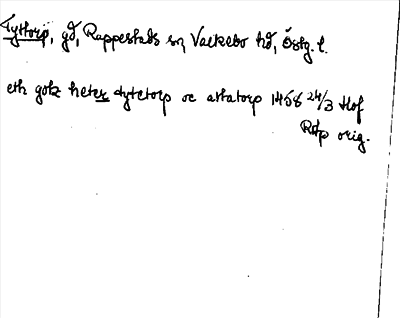 Tyttorp, gd, Rappestads sn, Valkebo hd, Östg. l.
eth gotz heter dytetorp oc attatorp 1458 24/3 Hof
Rdp orig.